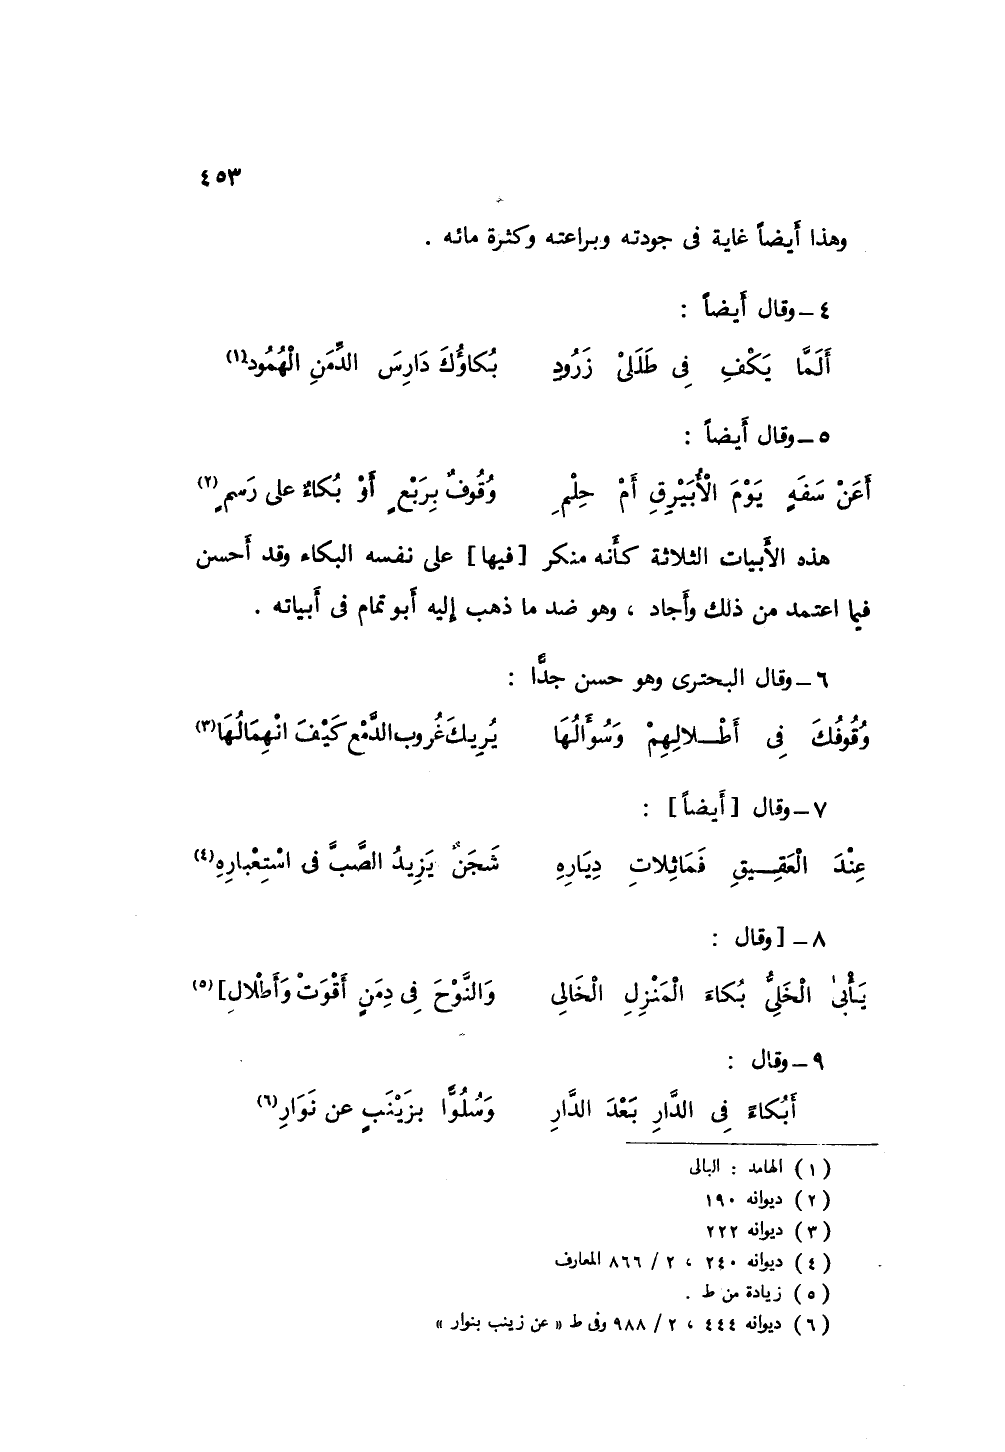 ٤٥٣
وهذا أَيضاً غاية فى جودته وبراعته وكثرة مائه .
٤ ــ وقال أَيضاً :
أَلَمَّا يَكْفِ فِى طَلَلَىْ زَرُودِ بُكاؤُكَ دَارِسَ الدِّمَنِ الْهُمُودِ(١)
٥ ــ وقال أَيضاً :
أَعَنْ سَفَهٍ يَوْمَ الْأُبَيْرِقِ أَمْ حِلْمِ وُقُوفٌ بِرَبْعٍ أَوْ بُكاءٌ على رَسمٍ(٢)
هذه الأَبيات الثلاثة كأَنه منكر [فيها] على نفسه البكاء وقد أَحسن
فيما اعتمد من ذلك وأَجاد ، وهو ضد ما ذهب إليه أَبو تمام فى أَبياته .
٦ ــ وقال البحترى وهو حسن جدًّا :
وُقُوفُكَ فِى أَطْــلالِهِمْ وَسُوأَلُهَا يُرِيكَ غُروبَ الدَّمْع كَيْفَ انْهِمَالُهَا(٣)
٧ ــ وقال [أَيضاً] :
عِنْدَ الْعَقِــيقِ فَمَاثِلاتِ دِيَارِهِ شَجَنٌ يَزِيدُ الصَّبَّ فى اسْتِعْبارِهِ(٤)
٨ ــ [وقال :
يَأْبىٰ الْخَلِىُّ بُكاءَ الْمَنْزِلِ الْخَالِى وَالنَّوْحَ فِى دِمَنٍ أَقْوَتْ وَأَطْلالِ](٥)
٩ ــ وقال :
أَبُكاءً فِى الدَّارِ بَعْدَ الدَّارِ وَسُلُوًّا بزَيْنَبٍ عن نَوَارِ(٦)
(١) الهامد : البالى
(٢) ديوانه ١٩٠
(٣) ديوانه ٢٢٢
(٤) ديوانه ٢٤٠ ، ٢ / ٨٦٦ المعارف
(٥) زيادة من ط .
(٦) ديوانه ٤٤٤ ، ٢ / ٩٨٨ وفى ط « عن زينب بنوار »